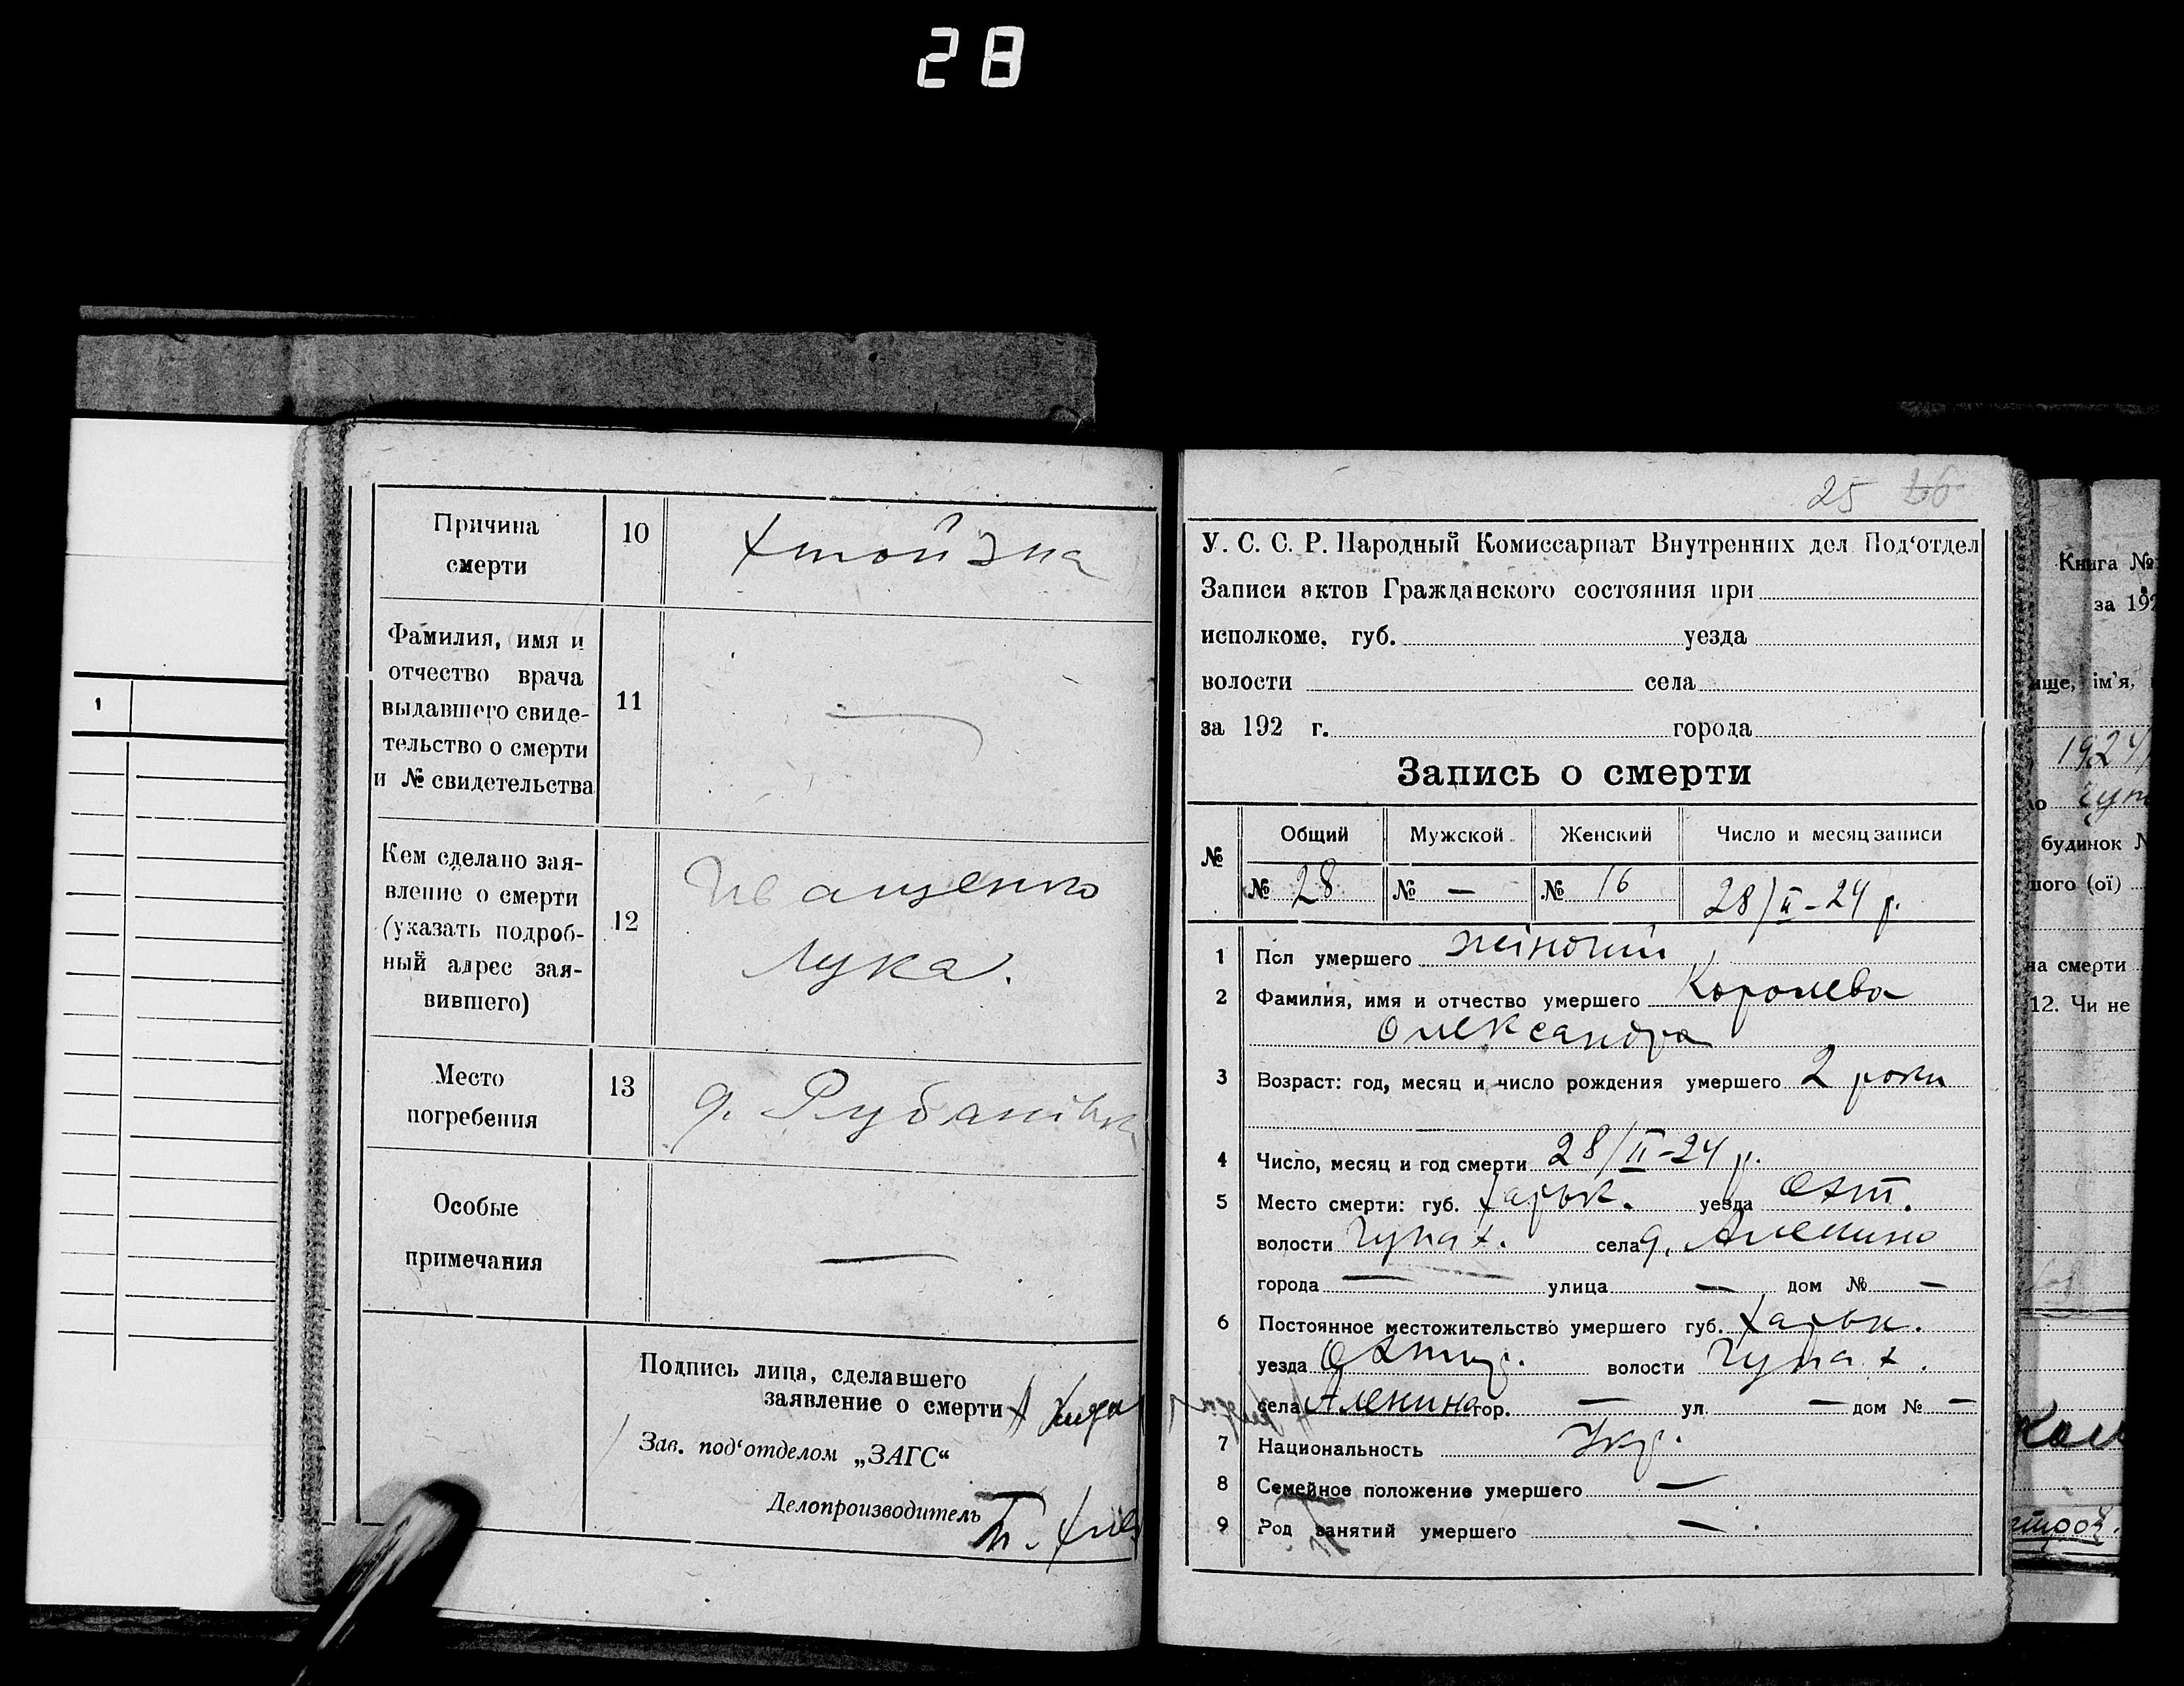 28
1
Причина
смерти
10
Фамилия, имя и
отчество врача
выдавшего свиде-
тельство о смерти
и № свидетельства
11
—
Кем сделано зая-
вление о смерти
(указать подроб-
ный адрес зая-
вившего)
12
Иващенко
Лука.
Место
погребения
13
д. Рубанівка
Особые
примечания
—
Подпись лица, сделавшего
заявление о смерти
Зав. под‘отделом „ЗАГС“
Делопроизводитель
25 26
У. С. С. Р. Народный Комиссариат Внутренних дел Под‘отдел
Записи актов Гражданского состояния при
исполкоме, губ. уезда
волости села
за 192 г. города
Запись о смерти
№ Общий Мужской Женский Число и месяц записи
№ 28 № — № 16 28/II-24 р.
1 Пол умершего жіночий
2 Фамилия, имя и отчество умершего Королева
Олександра
3 Возраст: год, месяц и число рождения умершего 2 роки
4 Число, месяц и год смерти 28/II-24 р.
5 Место смерти: губ. Харьк. уезда Охт.
волости Чупах. села д.
города — улица — дом № —
6 Постоянное местожительство умершего губ. Харьк.
уезда Охтир. волости Чупах.
села гор. — ул — дом № —
7 Национальность Укр.
8 Семейное положение умершего —
9 Род занятий умершего —
Книга №
за 192
ище, ім’я,
1924
будинок №
ного (ої)
на смерти
12. Чи не